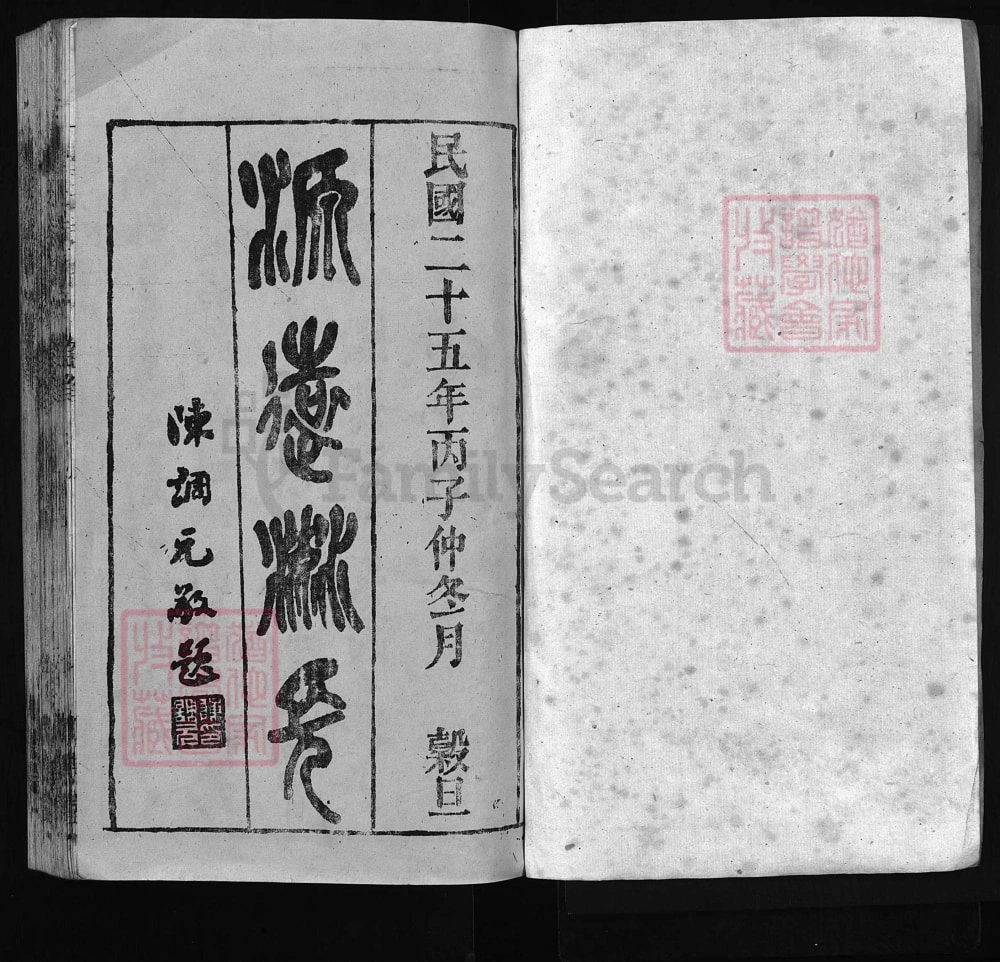 猶他家
譜學會
特藏
民國二十五年丙子仲冬月 穀旦
源遠流長
陳調元敬題
猶他家
譜學會
特藏
FamilySearch